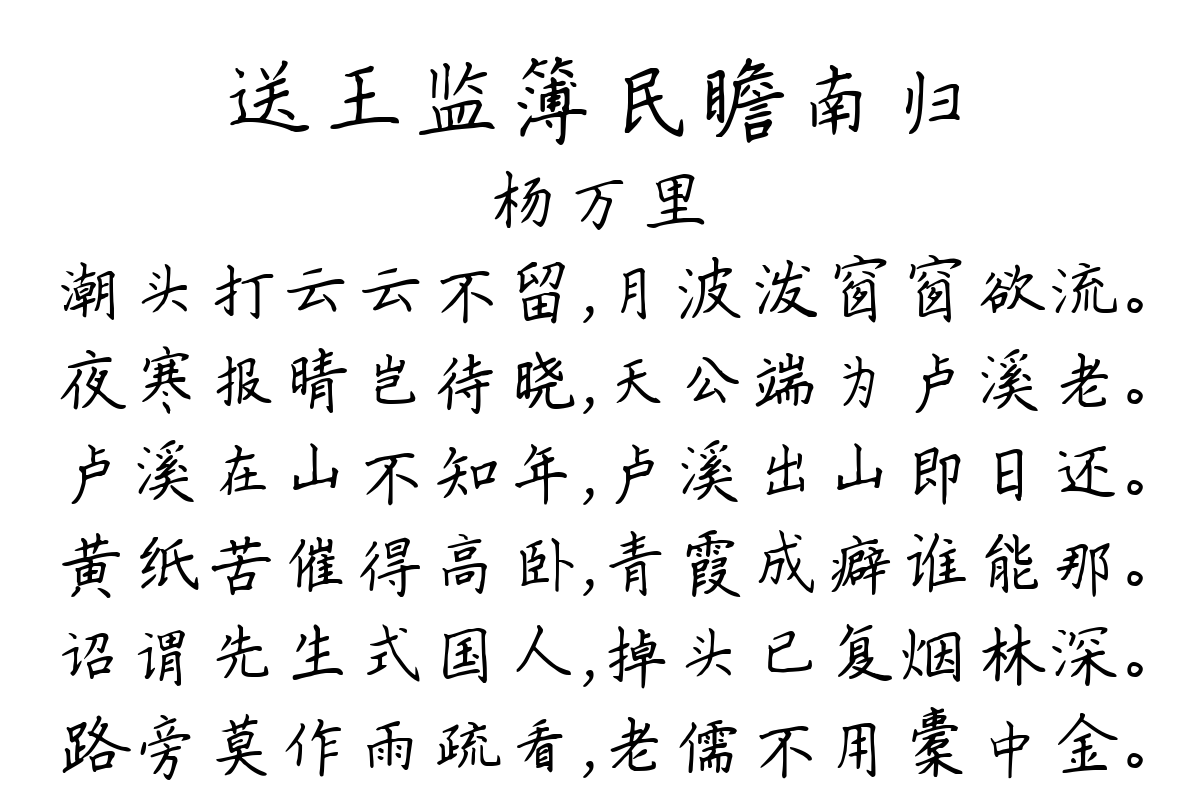 送王监簿民瞻南归
杨万里
潮头打云云不留,月波泼窗窗欲流。
夜寒报晴岂待晓,天公端为卢溪老。
卢溪在山不知年,卢溪出山即日还。
黄纸苦催得高卧,青霞成癖谁能那。
诏谓先生式国人,掉头已复烟林深。
路旁莫作雨疏看,老儒不用橐中金。